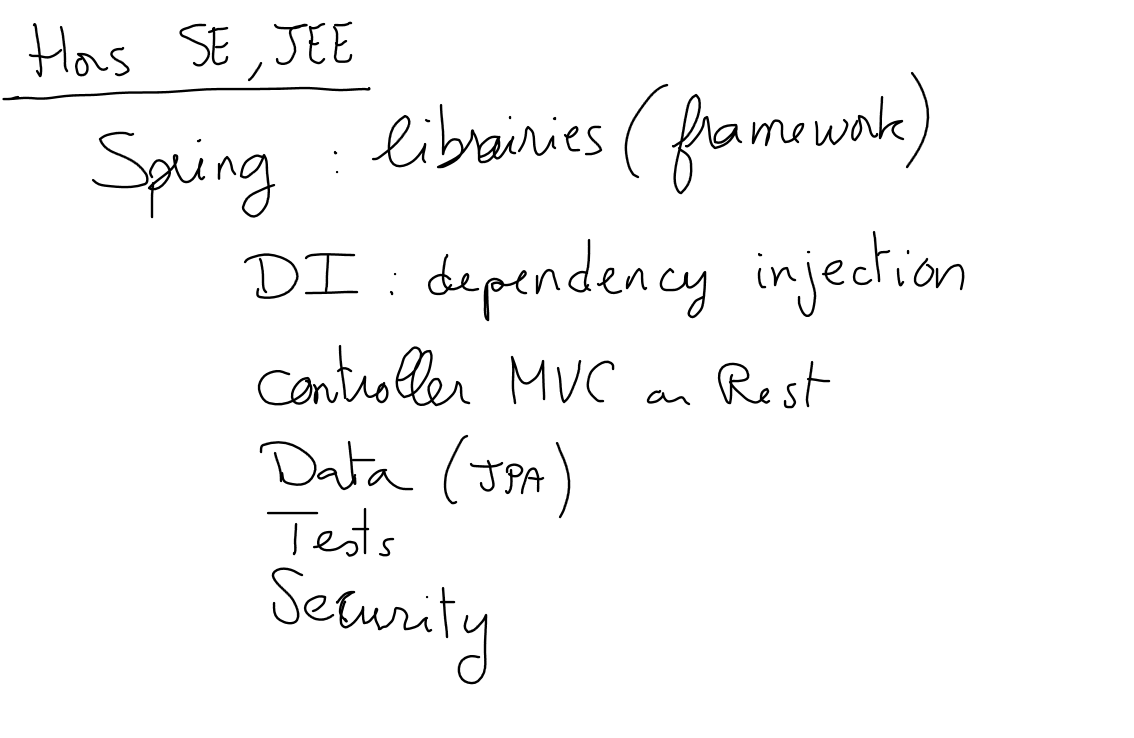 Hors SE, JEE
Spring : librairies (framework)
DI : dependency injection
controller MVC ou Rest
Data (JPA)
Tests
Security